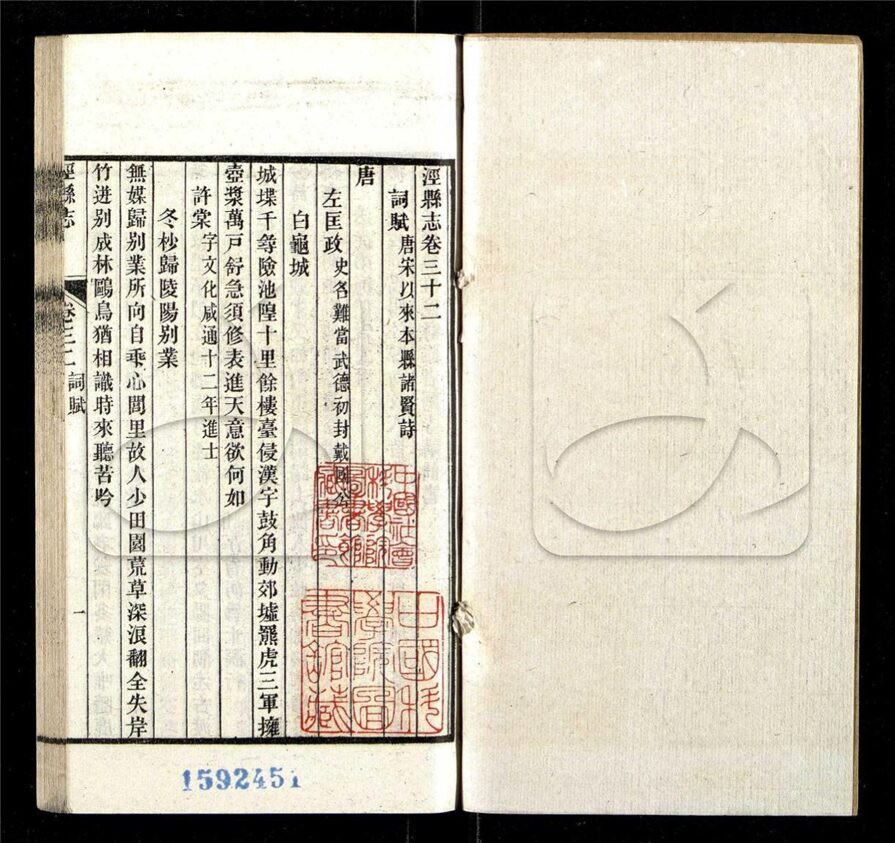 涇縣志卷三十二
詞賦 唐宋以來本縣諸賢詩
唐
左匡政 史各難當武德初封戴國公
白龜城
城堞千尋險池隍十里餘樓臺侵漢宇鼓角動郊墟羆虎三軍擁
壺漿萬戸舒急須修表進天意欲何如
許棠 字文化咸通十二年進士
冬杪歸陵陽别業
無媒歸别業所向自乖心閭里故人少田園荒草深浪翻全失岸
竹迸别成林鷗鳥猶相識時來聽苦吟
涇縣志
卷三十二 詞賦
一
中國社會科學院圖書館藏書印
中國科學院圖書館藏
1592451